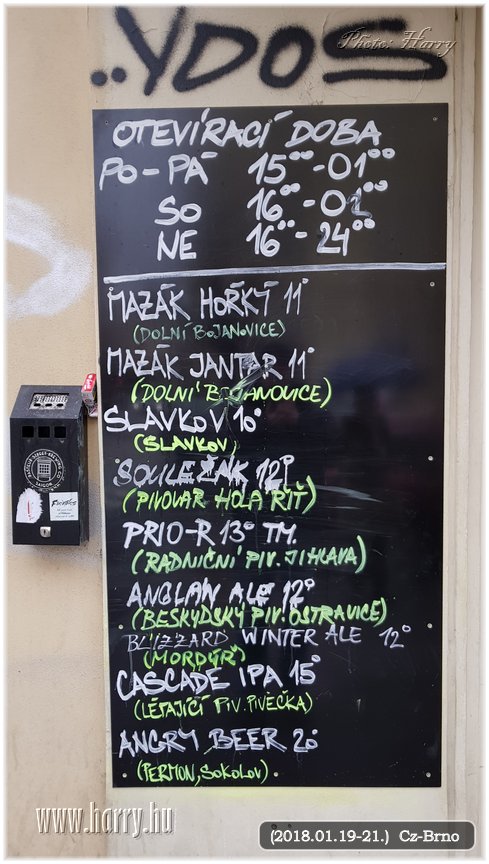 ..YDOS
Photo: Harry
OTEVÍRACÍ DOBA
PO-PÁ 15⁰⁰-01⁰⁰
SO 16⁰⁰-02⁰⁰
NE 16⁰⁰-24⁰⁰
MAZÁK HOŘKÝ 11°
(DOLNÍ BOJANOVICE)
MAZÁK JANTAR 11°
(DOLNÍ BOJANOVICE)
SLAVKOV 10°
(SLAVKOV)
SOULEŽÁK 12°
(PIVOVAR HOLÁ ŘIŤ)
PRIO-R 13° TM.
(RADNIČNÍ PIV. JIHLAVA)
ANGLAN ALE 12°
(BESKYDSKÝ PIV. OSTRAVICE)
BLIZZARD WINTER ALE 12°
(MORDÝŘ)
CASCADE IPA 15°
(LÉTAJÍCÍ PIV. PIVEČKA)
ANGRY BEER 20
(PERMON, SOKOLOV)
www.harry.hu
(2018.01.19-21.) Cz-Brno